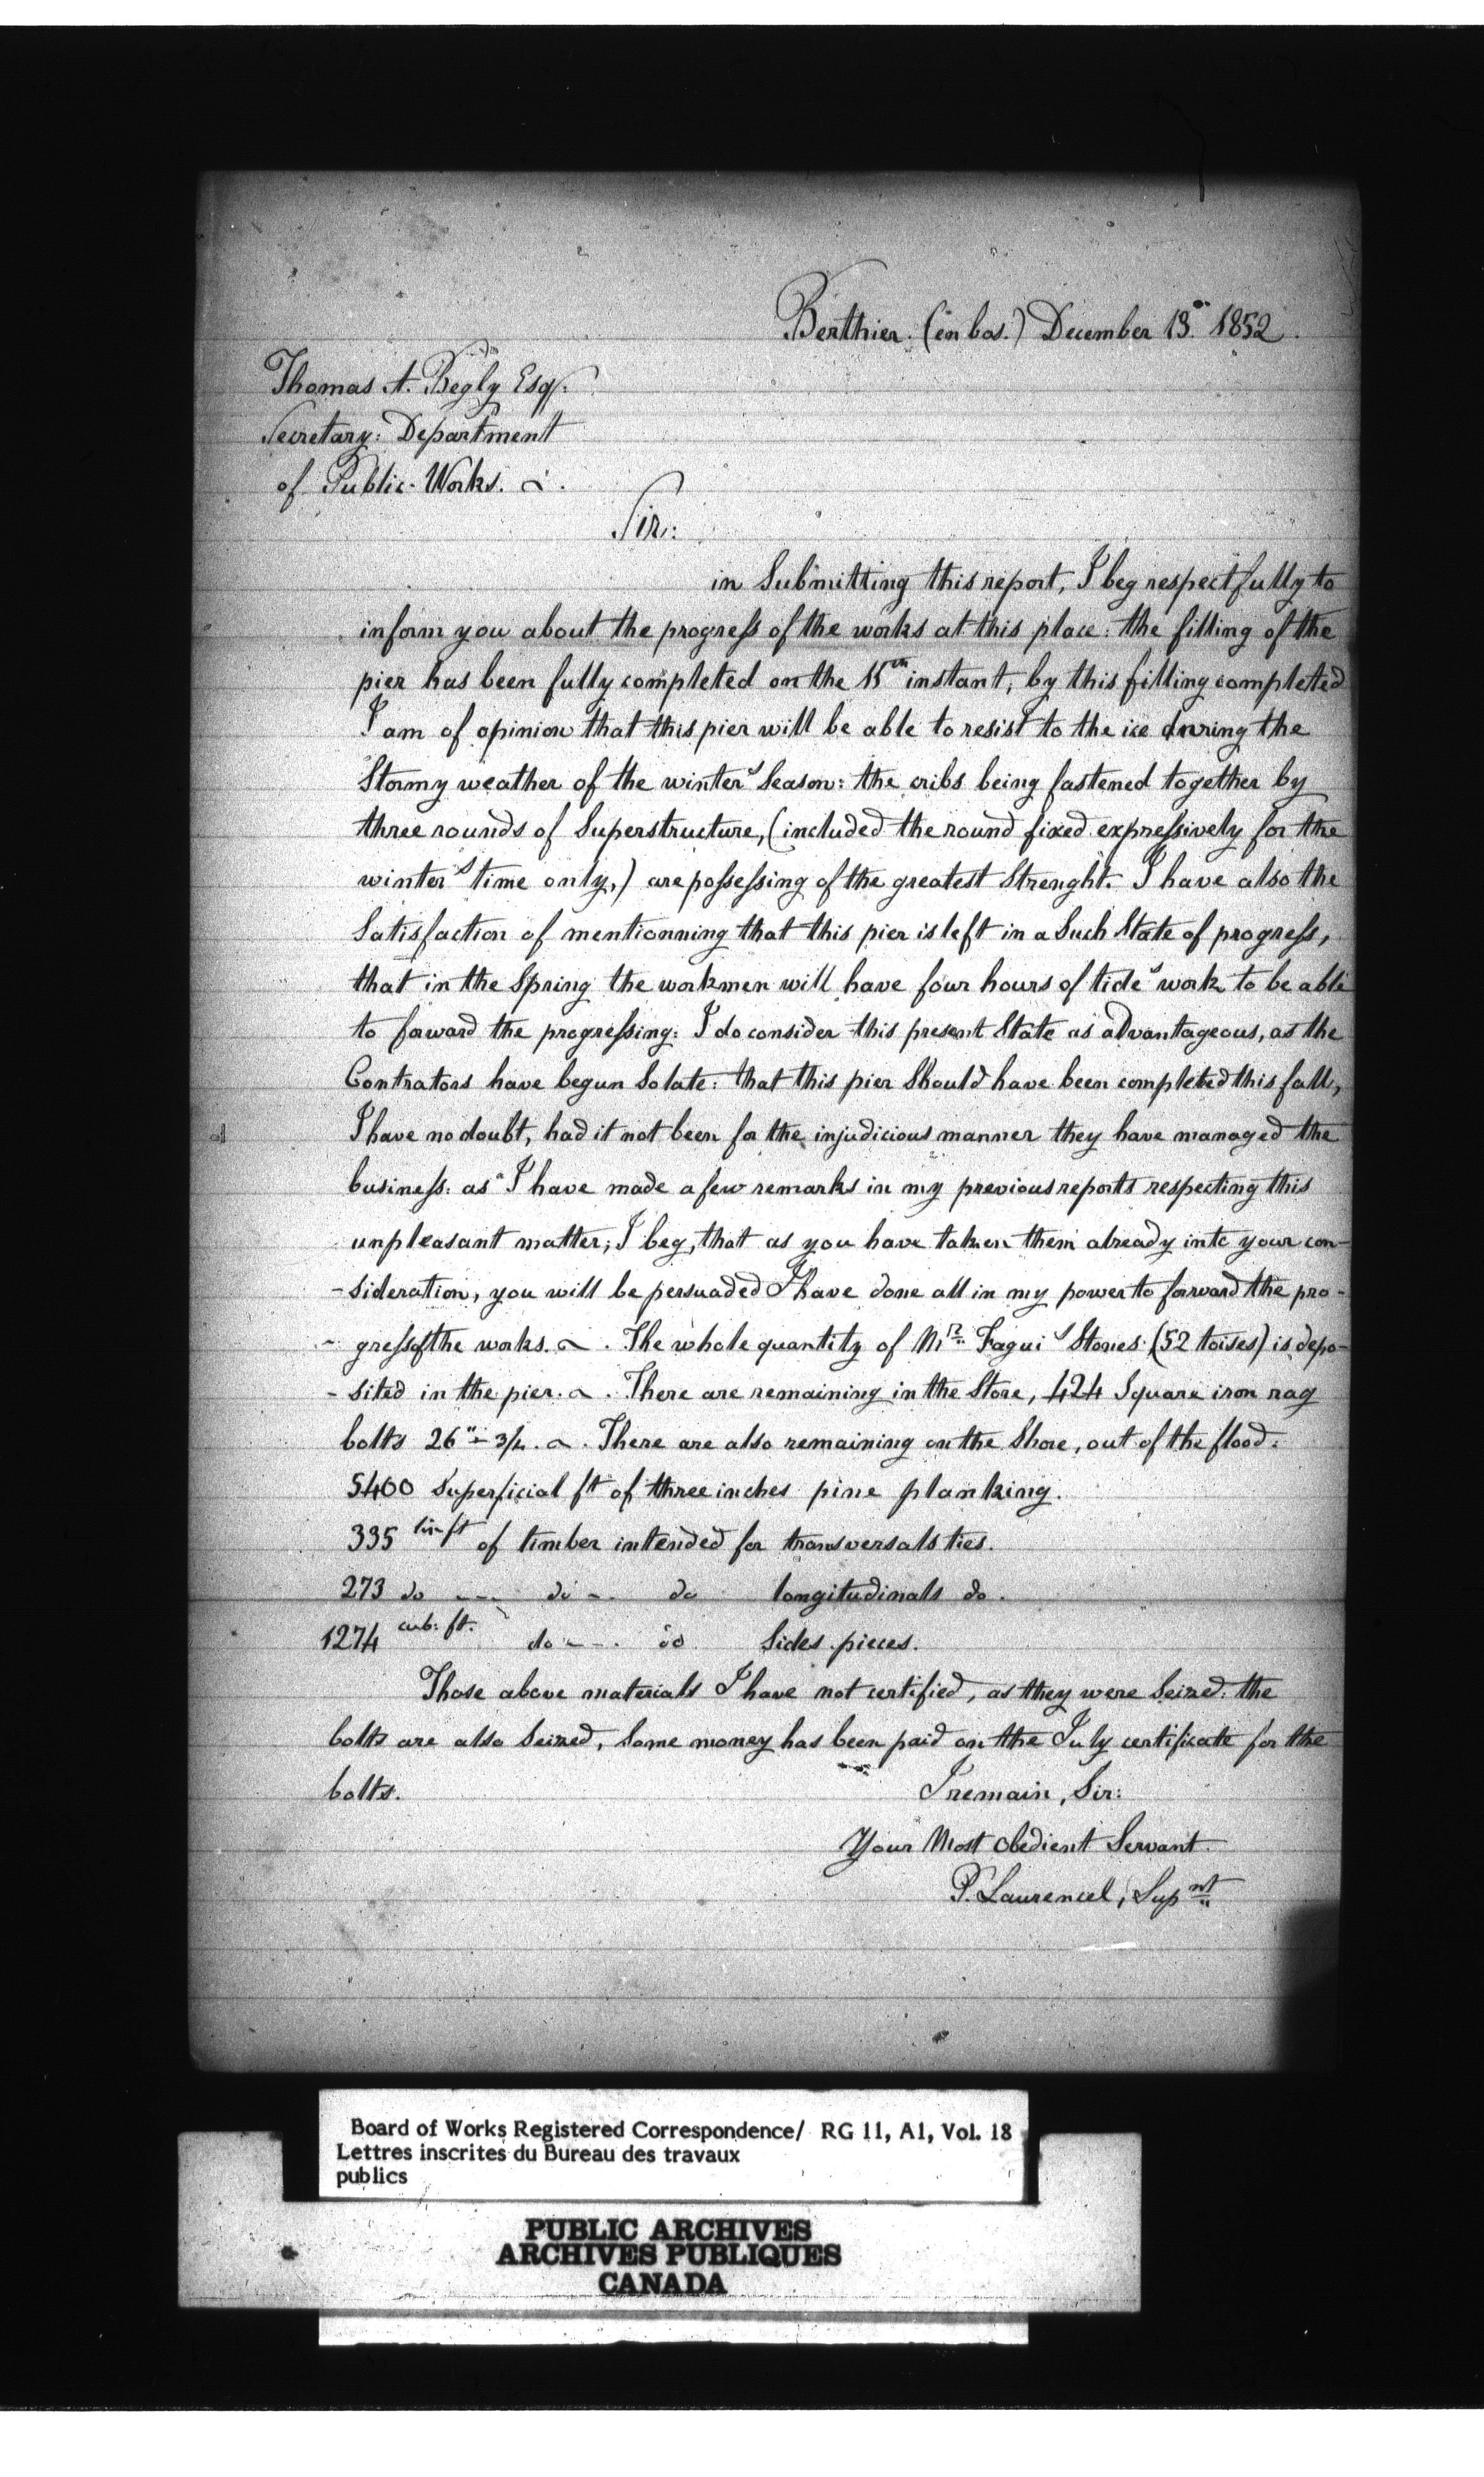 Berthier. (en bas.) December 13. 1852.
Thomas A. Begly Esqr.
Secretary: Department
of Public Works.
Sir:
in Submitting this report, I beg respectfully to
inform you about the progress of the works at this place: the filling of the
pier has been fully completed on the 11th instant, by this filling completed
I am of opinion that this pier will be able to resist to the ice during the
Stormy weather of the winter's Season: the cribs being fastened together by
three rounds of Superstructure, (included the round fixed expressively for the
winter's time only,) are possessing of the greatest Strenght. I have also the
Satisfaction of mentionning that this pier is left in a Such State of progress,
that in the Spring the workmen will have four hours of tide's work to be able
to forward the progressing: I do consider this present State as advantageous, as the
Contrators have begun So late: that this pier Should have been completed this fall,
I have no doubt, had it not been for the injudicious manner they have managed the
business: as I have made a few remarks in my previous reports respecting this
unpleasant matter; I beg, that as you have taken them already into your con-
-sideration, you will be persuaded I have done all in my power to forward the pro-
-gress of the works. The whole quantity of Mr. Fagui's Stones (52 toises) is depo-
-sited in the pier. There are remaining in the Store, 424 Square iron rag
bolts 26" - 3/4. There are also remaining on the Shore, out of the flood:
5400 Superficial ft of three inches pine planking.
335 lin ft of timber intended for transversals ties.
273 do --- do -. do longitudinals do.
1274 cub: ft. do --. do Sides pieces.
Those above materials I have not certified, as they were Seized: the
bolts are also Seized, Some money has been paid on the July certificate for the
bolts. I remain, Sir:
Your Most Obedient Servant.
P. Laurencel, Supnt
Board of Works Registered Correspondence/ RG 11, A1, Vol. 18
Lettres inscrites du Bureau des travaux
publics
PUBLIC ARCHIVES
ARCHIVES PUBLIQUES
CANADA